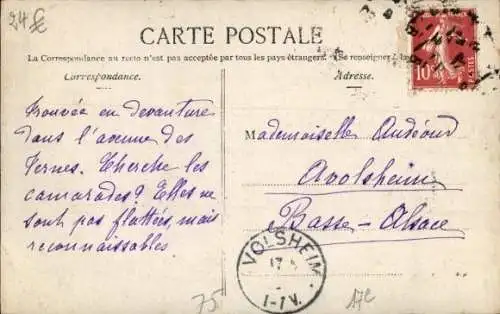 24€
CARTE POSTALE
La Correspondance au recto n'est pas acceptée par tous les pays étrangers. (Se renseigner à la
Correspondance.
Adresse.
10
POSTES
Trouvée en devanture
dans l'avenue des
Ternes. Cherche les
camarades? Elles ne
sont pas flattées, mais
reconnaissables
Mademoiselle Audéoud
Avolsheim
Basse-Alsace
VOLSHEIM
17
1-7 V.
75
17e